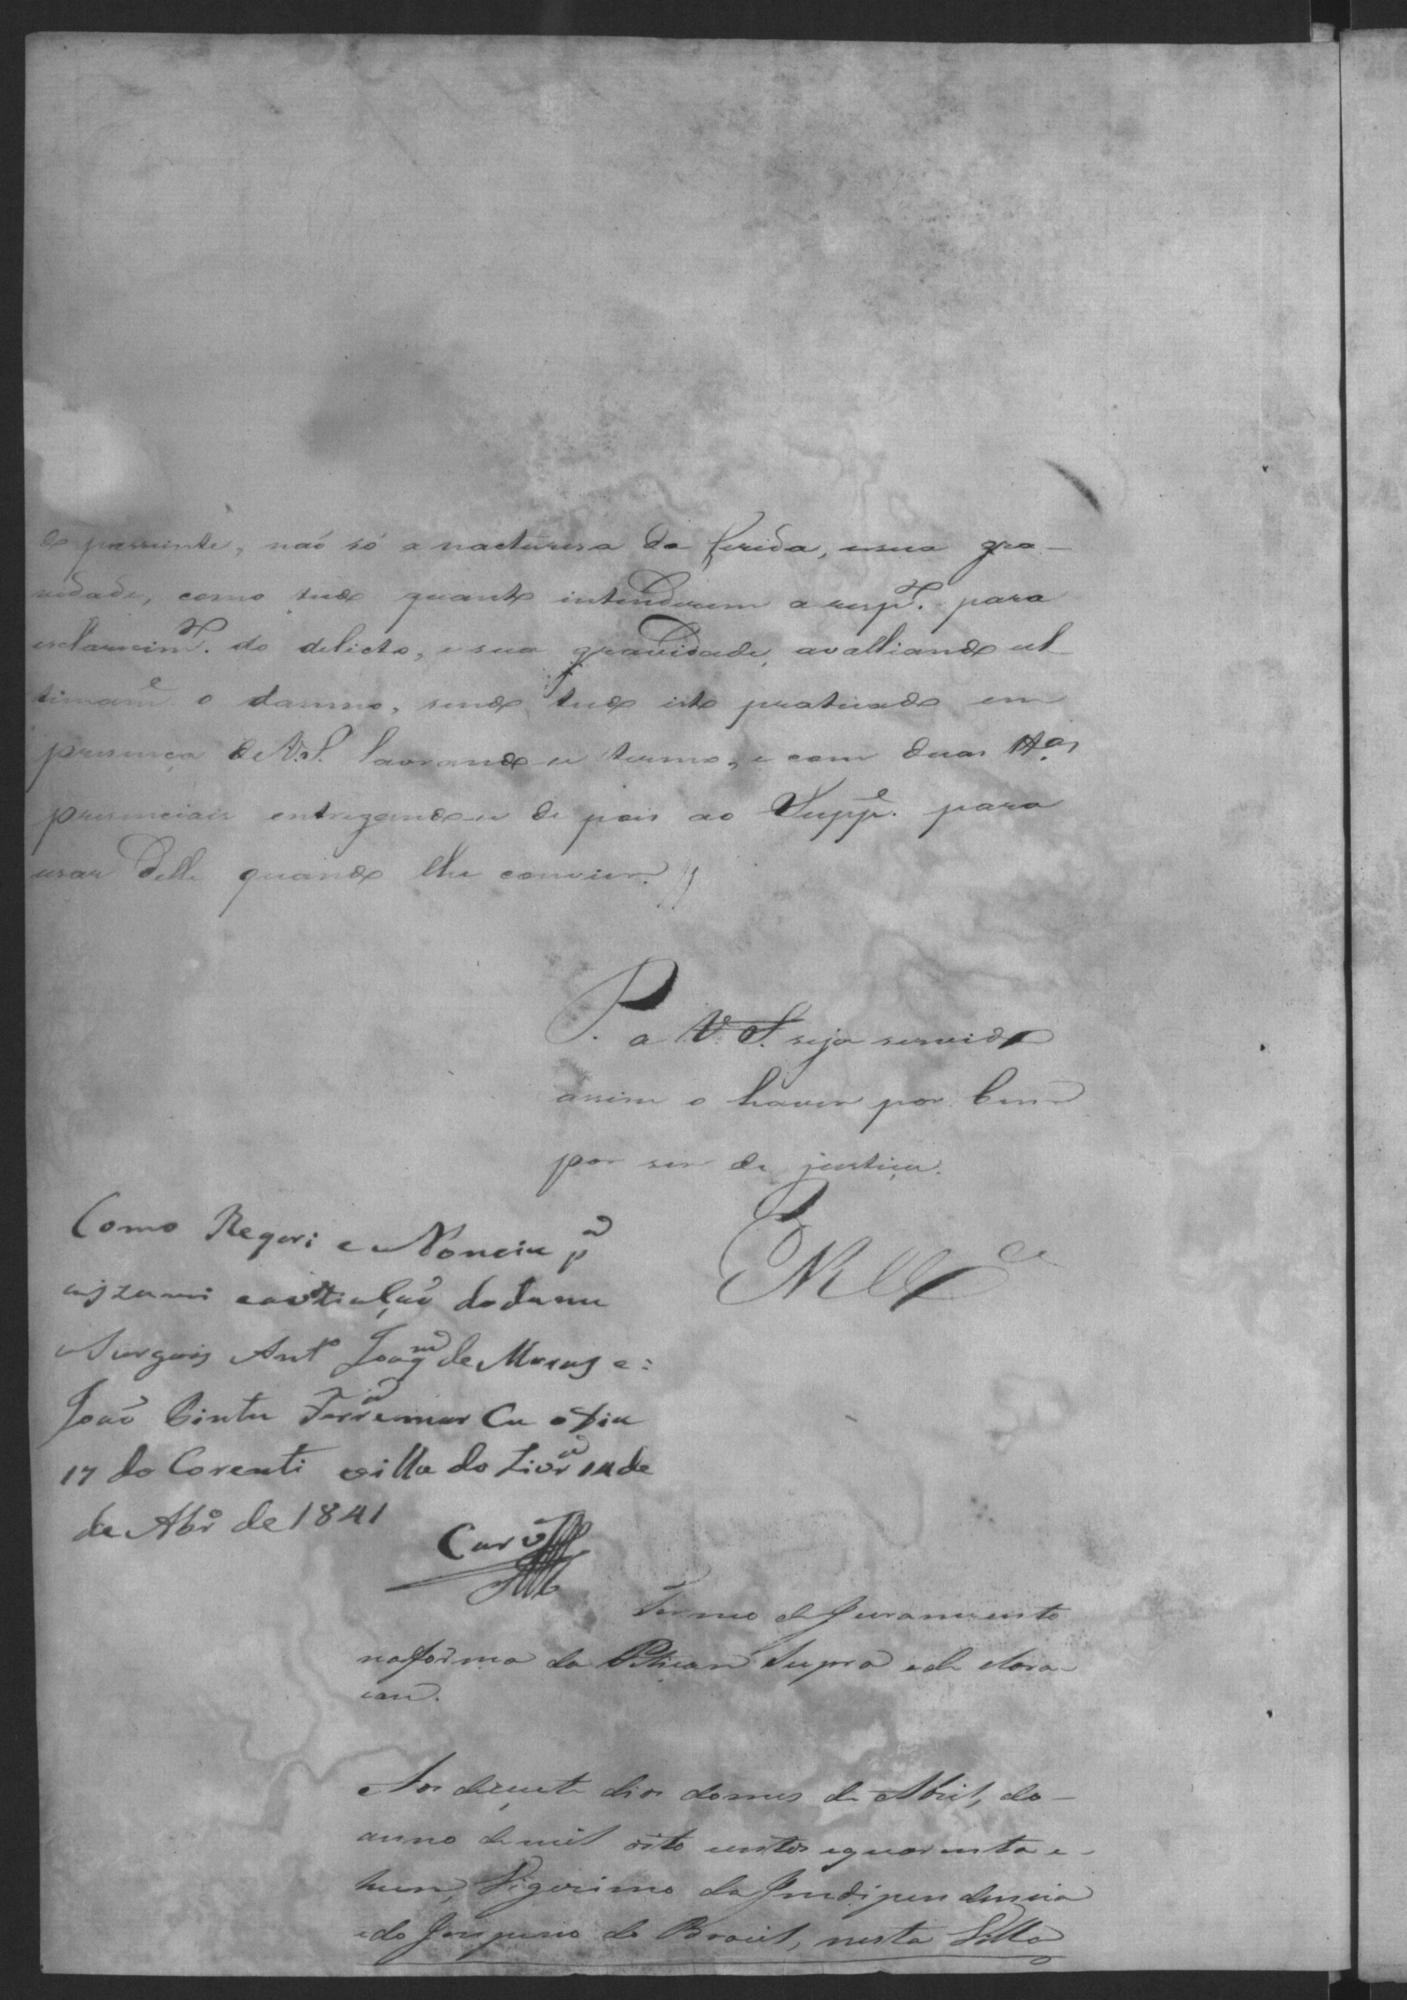 do passiente, naõ só a nacturesa da ferida, esua gra-
vidade, como tudo quanto intenderem a resp.to para
esclarecim.to do delicto, e sua gravidade, avalliando ul-
timam.e o damno, sendo tudo isto praticado em
presença de V.S. lavrando-se termo, e com duas tt.as
presenciais entregando-se de pois ao Supp.e para
usar delle quando lhe convier.
P. a V.S. seja servido
assim o haver por bem
por ser de justiça.
E R M.ce
Como Reqeri e Nomeiu p.a
ezzami eavalialçaõ dodanu
Surgois Ant.o Joaq.m de Moraes e:
Joaõ Pintu Ferr.a marCu odiu
17 do Corenti villa do Livr.a 14 de
de Abr.o de 1841
Carv.o
Termo de Juramento
naforma da Peticam Supra ede clara-
cam.
Aos deçacete dias domes de Abril, do-
anno de mil oito centos equarenta e-
hum, Vigecimo da Indipendencia
edo Imperio do Brasil, nesta Villa